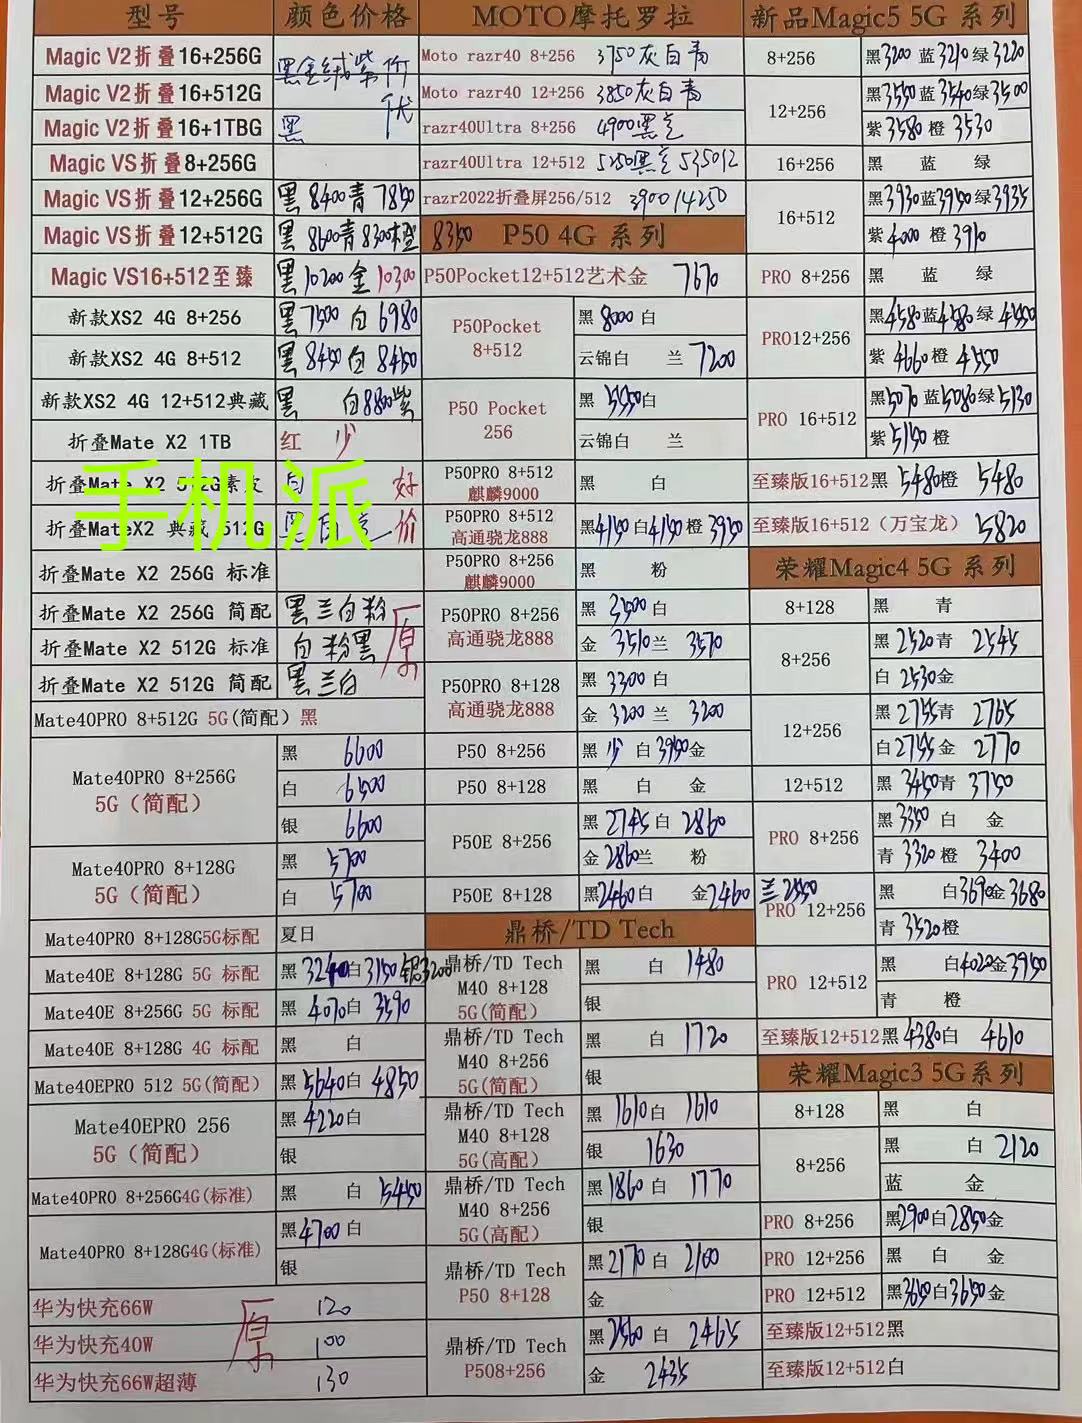 型号 颜色价格
Magic V2折叠16+256G 黑金绒紫 价
Magic V2折叠16+512G 优
Magic V2折叠16+1TBG 黑
Magic VS折叠8+256G
Magic VS折叠12+256G 黑8400青7850
Magic VS折叠12+512G 黑8600青8300橙8350
Magic VS16+512至臻 黑10200金10300
新款XS2 4G 8+256 黑7500白6980
新款XS2 4G 8+512 黑8450白8450
新款XS2 4G 12+512典藏 黑 白8800紫
折叠Mate X2 1TB 红 少
折叠Mate X2 512G素皮 白 好
折叠MateX2 典藏 512G 价
手机派
折叠Mate X2 256G 标准
折叠Mate X2 256G 简配 黑兰白粉
折叠Mate X2 512G 标准 白粉黑
原
折叠Mate X2 512G 简配 黑兰白
Mate40PRO 8+512G 5G(简配) 黑
Mate40PRO 8+256G
5G（简配）
黑 6600
白 6500
银 6600
Mate40PRO 8+128G
5G（简配）
黑 5700
白 5700
Mate40PRO 8+128G5G标配 夏日
Mate40E 8+128G 5G 标配 黑 白3150银3200
Mate40E 8+256G 5G 标配 黑4070白3590
Mate40E 8+128G 4G 标配 黑 白
Mate40EPRO 512 5G(简配) 黑5640白4850
Mate40EPRO 256
5G（简配）
黑4220白
银
Mate40PRO 8+256G4G(标准) 黑 白5450
Mate40PRO 8+128G4G(标准)
黑4700白
银
华为快充66W 120
华为快充40W 100
原
华为快充66W超薄 130
MOTO摩托罗拉
Moto razr40 8+256 3750灰白青
Moto razr40 12+256 3850灰白青
razr40Ultra 8+256 4900黑
razr40Ultra 12+512 5250黑
razr2022折叠屏256/512 3900/4250
P50 4G 系列
P50Pocket12+512艺术金 7670
P50Pocket
8+512
黑8000白
云锦白 兰7200
P50 Pocket
256
黑5550白
云锦白 兰
P50PRO 8+512
麒麟9000
黑 白
P50PRO 8+512
高通骁龙888
黑4150白4150橙3950
P50PRO 8+256
麒麟9000
黑 粉
P50PRO 8+256
高通骁龙888
黑3500白
金3510兰3570
P50PRO 8+128
高通骁龙888
黑3300白
金3200兰3200
P50 8+256 黑少白3950金
P50 8+128 黑 白 金
P50E 8+256
黑2745白2860
金2860兰 粉
P50E 8+128 黑2460白 金2460 兰2550
鼎桥/TD Tech
鼎桥/TD Tech
M40 8+128
5G(简配)
黑 白 1480
银
鼎桥/TD Tech
M40 8+256
5G(简配)
黑 白 1720
银
鼎桥/TD Tech
M40 8+128
5G(高配)
黑1610白1610
银 1630
鼎桥/TD Tech
M40 8+256
5G(高配)
黑1860白1770
银
鼎桥/TD Tech
P50 8+128
黑2170白2100
金
鼎桥/TD Tech
P508+256
黑2560白2465
金 2435
新品Magic5 5G 系列
8+256 黑3200蓝3210绿3220
12+256
黑3550蓝3540绿3500
紫3580橙3530
16+256 黑 蓝 绿
16+512
黑3930蓝3950绿3935
紫4000橙3910
PRO 8+256 黑 蓝 绿
PRO12+256
黑4580蓝4580绿4550
紫4660橙4550
PRO 16+512
黑5070蓝5080绿5130
紫5150橙
至臻版16+512黑5480橙5480
至臻版16+512（万宝龙）5820
荣耀Magic4 5G 系列
8+128 黑 青
8+256
黑2520青2545
白2530金
12+256
黑2755青2765
白2755金2770
12+512 黑3450青3750
PRO 8+256
黑3350白 金
青3320橙3400
PRO 12+256
黑 白3690金3680
青3520橙
PRO 12+512
黑 白4020金3950
青 橙
至臻版12+512黑4380白4610
荣耀Magic3 5G系列
8+128 黑 白
8+256
黑 白2120
蓝 金
PRO 8+256 黑2900白2850金
PRO 12+256 黑 白 金
PRO 12+512 黑3650白3650金
至臻版12+512黑
至臻版12+512白